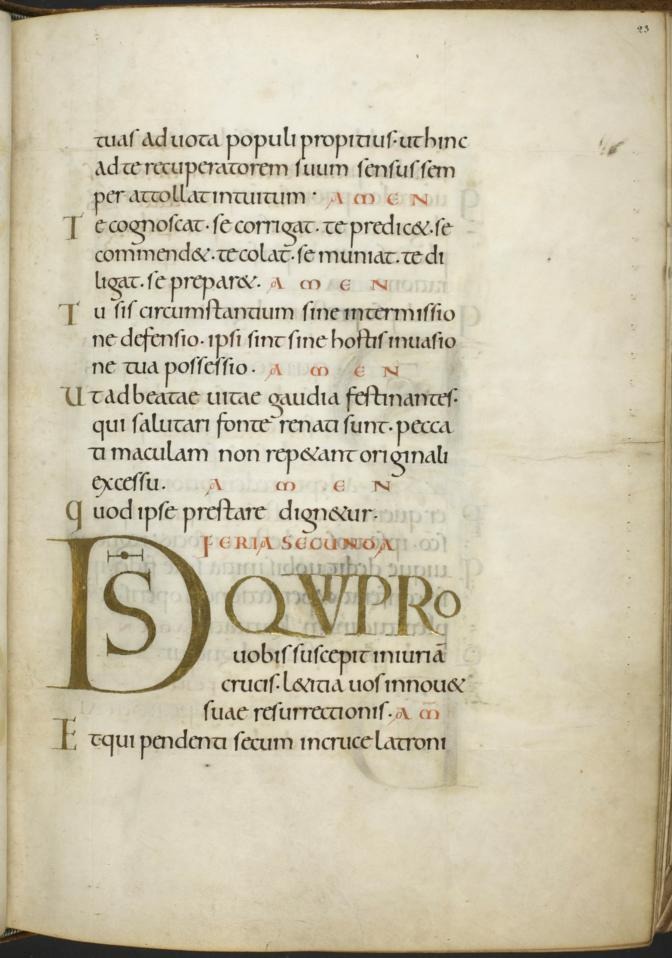 23
tuas ad uota populi propitius· ut hinc
ad te recuperatorem suum sensus sem
per attollat intuitum· AMEN
Te cognoscat· se corrigat· te predic&· se
commend&· te colat· se muniat· te di
ligat· se prepar&· AMEN
Tu sis circumstantium sine intermissio
ne defensio· ipsi sint sine hostis inuasio
ne tua possessio· AMEN
Ut ad beatae uitae gaudia festinantes·
qui salutari fonte renati sunt· pecca
ti maculam non rep&ant originali
excessu. AMEN
quod ipse prestare dign&ur·
FERIA SECUNDA
DS QVI PRO
uobis suscepit iniuriā
crucis· l&itia uos innou&
suae resurrectionis· AM̅
Et qui pendenti secum in cruce latroni